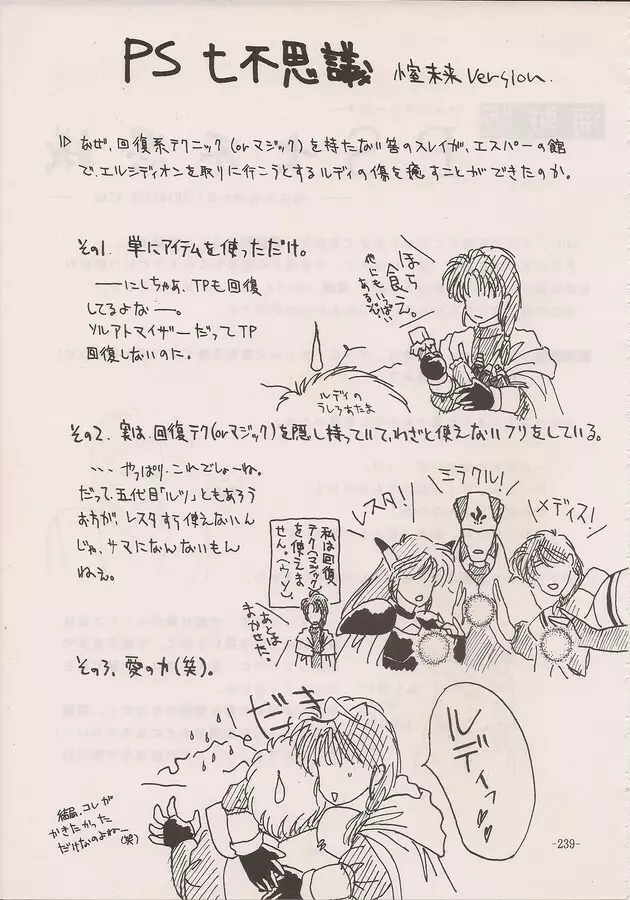 PS 七不思議 小室未来 Version.
なぜ、回復系テクニック(orマジック)を持たない筈のスレイが、エスパーの館
で、エルシディオンを取りに行こうとするルディの傷を癒すことができたのか。
その1. 単にアイテムを使っただけ。
――にしちゃあ、TPも回復
してるよな――。
ソルアトマイザーだってTP
回復しないのに。
ほら
食らえ。
ルディの
うしろあたま
その2. 実は、回復テク(orマジック)を隠し持っていて、わざと使えないフリをしている。
・・・やっぱり、これでしょーね。
だって、五代目「ルツ」ともあろう
お方が、レスタすら使えないん
じゃ、サマになんないもん
ねぇ。
レスタ!
ミラクル!
メディス!
私は回復
テク(マジック)
を使えま
せん。(ウソ)
あとは
まかせた。
その3. 愛の力(笑)。
だき
ルディっ♥♥
結局、コレが
かきたかった
だけなのよねー
(笑)
-239-